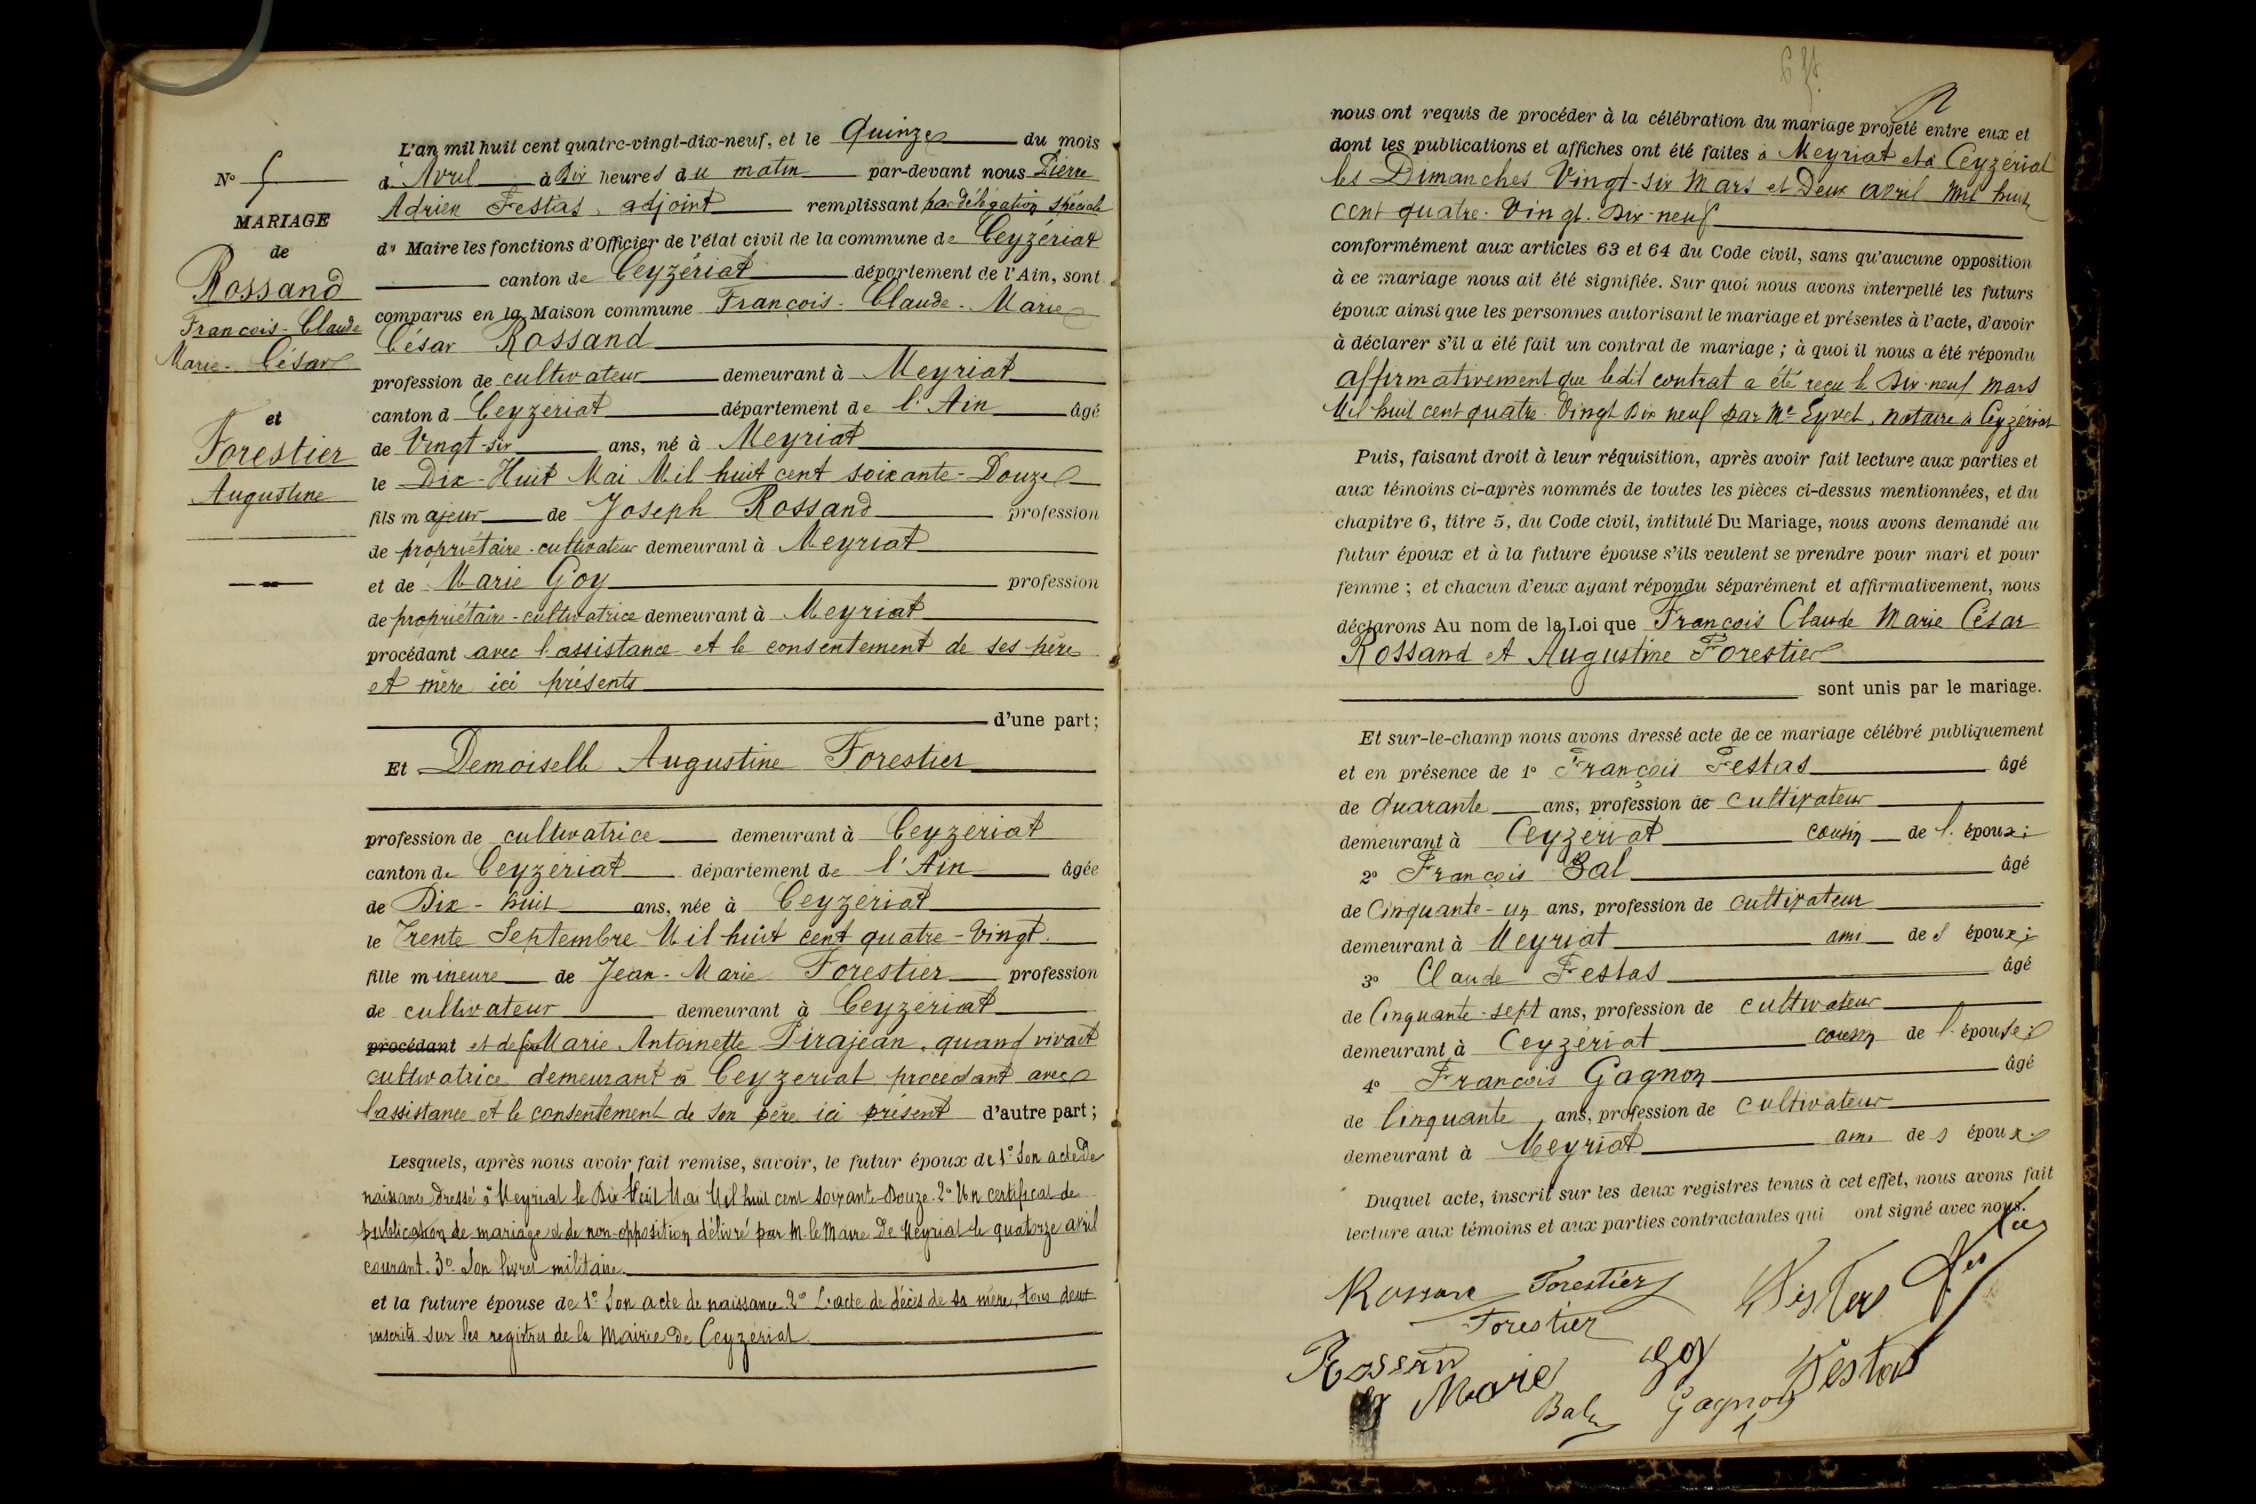 N° 5
MARIAGE
de
Rossand
François-Claude
Marie-César
et
Forestier
Augustine
L'an mil huit cent quatre-vingt-dix-neuf, et le Quinze du mois
d'Avril à Dix heures du matin par-devant nous Pierre
Adrien Festas, adjoint remplissant par délégation spéciale
du Maire les fonctions d'Officier de l'état civil de la commune de Ceyzériat
canton de Ceyzériat département de l'Ain, sont
comparus en la Maison commune François-Claude-Marie
César Rossand
profession de cultivateur demeurant à Meyriat
canton d Ceyzériat département de l'Ain âgé
de Vingt-six ans, né à Meyriat
le Dix-Huit Mai Mil huit cent soixante-Douze
fils majeur de Joseph Rossand profession
de propriétaire-cultivateur demeurant à Meyriat
et de Marie Goy profession
de propriétaire-cultivatrice demeurant à Meyriat
procédant avec l'assistance et le consentement de ses père
et mère ici présents
d'une part;
Et Demoiselle Augustine Forestier
profession de cultivatrice demeurant à Ceyzériat
canton de Ceyzériat département de l'Ain âgée
de Dix-huit ans, née à Ceyzériat
le Trente Septembre Mil huit cent quatre-Vingt.
fille mineure de Jean-Marie Forestier profession
de cultivateur demeurant à Ceyzériat
procédant et de feu Marie Antoinette Pirajean, quand vivait
cultivatrice demeurant à Ceyzeriat procédant avec
l'assistance et le consentement de son père ici présent d'autre part;
Lesquels, après nous avoir fait remise, savoir, le futur époux de 1° Son acte de
naissance dressé à Meyriat le Dix Huit Mai Mil huit cent soixante-Douze. 2° Un certificat de
publication de mariage et de non-opposition délivré par M. le Maire de Meyriat le quatorze avril
courant. 3° Son livret militaire.
et la future épouse de 1° Son acte de naissance 2° L'acte de décès de sa mère, tous deux
inscrits sur les registres de la Mairie de Ceyzériat
nous ont requis de procéder à la célébration du mariage projeté entre eux et
dont les publications et affiches ont été faites à Meyriat et à Ceyzériat
les Dimanches Vingt-six Mars et Deux avril mil huit
cent quatre-Vingt-Dix-neuf
conformément aux articles 63 et 64 du Code civil, sans qu'aucune opposition
à ce mariage nous ait été signifiée. Sur quoi nous avons interpellé les futurs
époux ainsi que les personnes autorisant le mariage et présentes à l'acte, d'avoir
à déclarer s'il a été fait un contrat de mariage; à quoi il nous a été répondu
affirmativement que ledit contrat a été reçu le Dix-neuf Mars
Mil huit cent quatre-Vingt Dix neuf par Me Eyvet, notaire à Ceyzériat
Puis, faisant droit à leur réquisition, après avoir fait lecture aux parties et
aux témoins ci-après nommés de toutes les pièces ci-dessus mentionnées, et du
chapitre 6, titre 5, du Code civil, intitulé Du Mariage, nous avons demandé au
futur époux et à la future épouse s'ils veulent se prendre pour mari et pour
femme; et chacun d'eux ayant répondu séparément et affirmativement, nous
déclarons Au nom de la Loi que François Claude Marie César
Rossand et Augustine Forestier
sont unis par le mariage.
Et sur-le-champ nous avons dressé acte de ce mariage célébré publiquement
et en présence de 1° François Festas âgé
de Quarante ans, profession de cultivateur
demeurant à Ceyzériat cousin de l'époux;
2° François Bal âgé
de Cinquante-un ans, profession de cultivateur
demeurant à Meyriat ami des époux;
3° Claude Festas âgé
de Cinquante-sept ans, profession de cultivateur
demeurant à Ceyzériat cousin de l'épouse;
4° François Gagnon âgé
de Cinquante ans, profession de cultivateur
demeurant à Meyriat ami des époux.
Duquel acte, inscrit sur les deux registres tenus à cet effet, nous avons fait
lecture aux témoins et aux parties contractantes qui ont signé avec nous.
Rossand Forestier Festas
Forestier
Rossand Goy Festas
Marie
Bal Gagnon